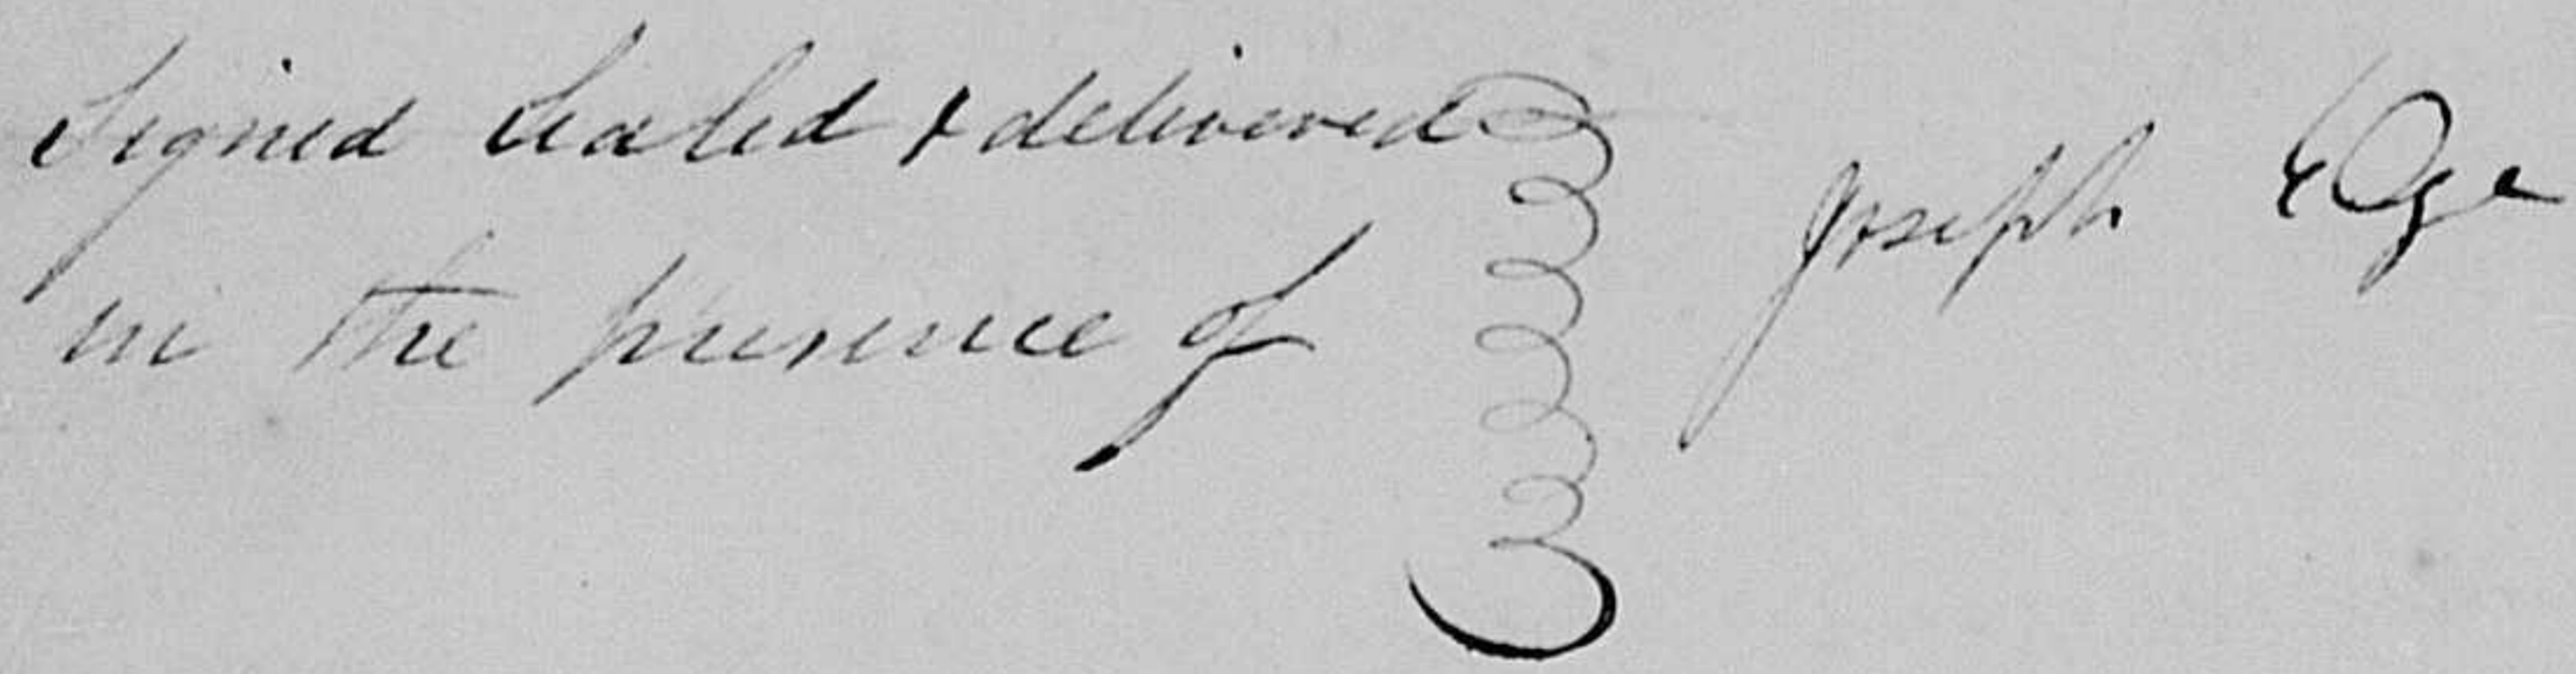 Signed Sealed & delivered
in the presence of
Joseph